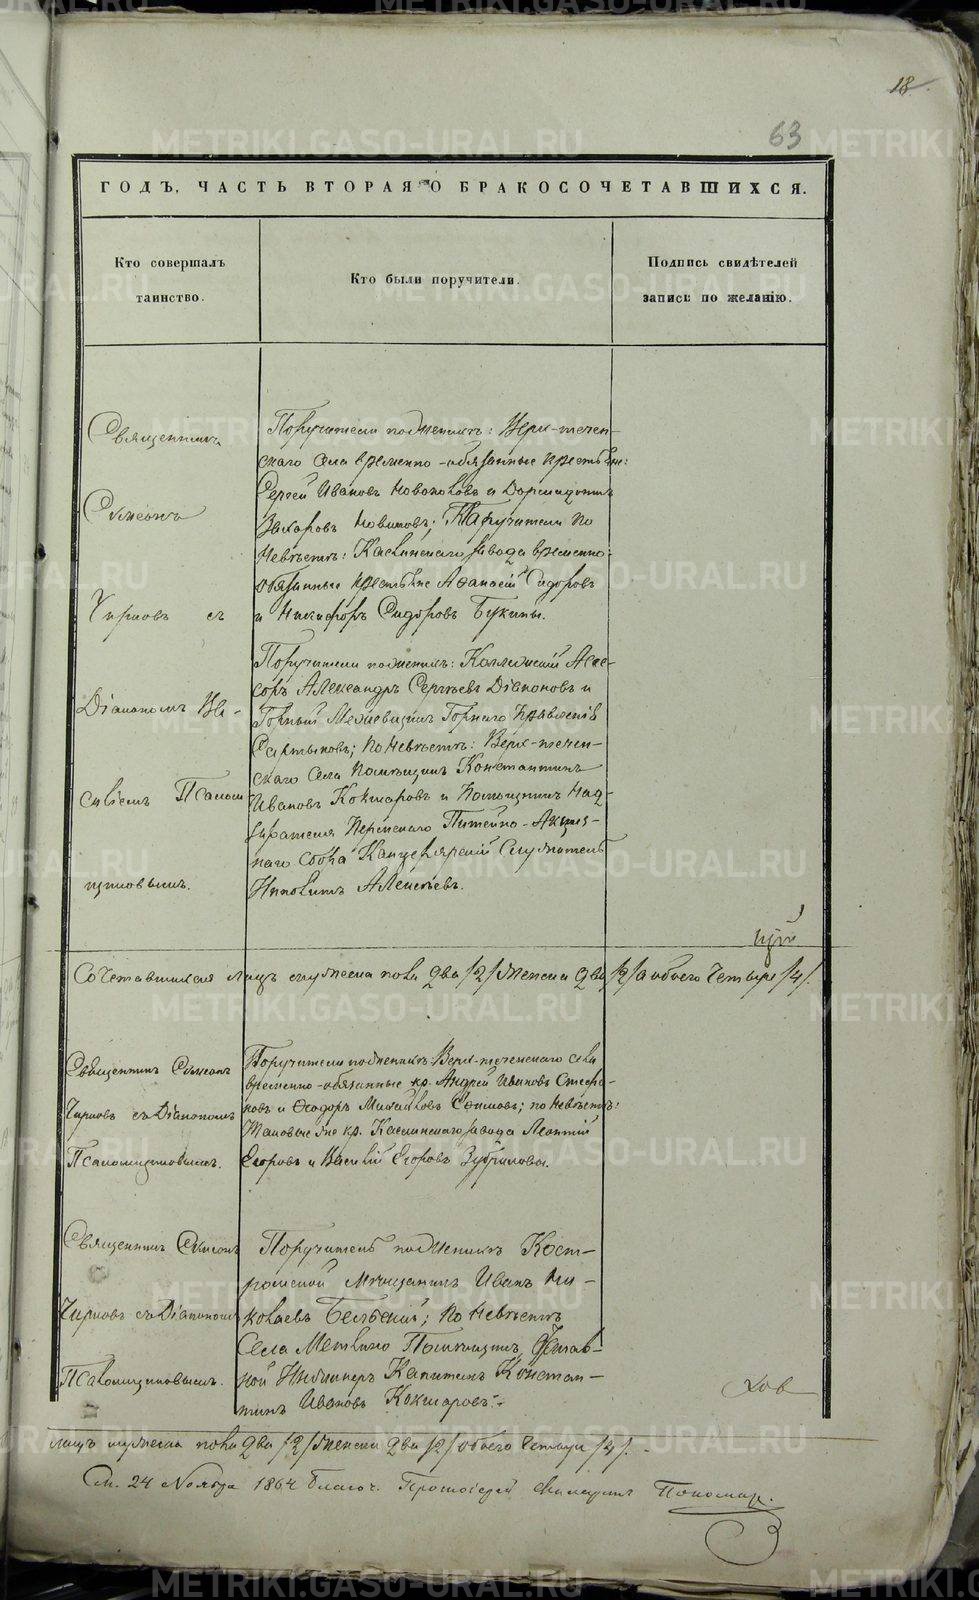 18
63
ГОДЪ, ЧАСТЬ ВТОРАЯ О БРАКОСОЧЕТАВШИХСЯ.
Кто совершалъ
таинство.
Кто были поручители.
Подпись свидѣтелей
записи по желанію.
Священникъ
Симеонъ
Чирковъ съ
Діакономъ
Псалом
щиковымъ.
Поручители по женихѣ: Верх-течен-
скаго села временно-обязанные крестьяне:
Сергей Ивановъ и
Захаровъ Новиковъ; Поручители по
невѣстѣ: Каслинскаго завода временно-
обязанные крестьяне Афанасій Сидоровъ
и Никифоръ Сидоровъ Букины.
Поручители по женихѣ: Коллежскій Асес-
соръ Александръ Сергѣевъ Діаконовъ и
Горный Горнаго Правленія
по невѣстѣ: Верх-течен-
скаго села Помѣщикъ Константинъ
Ивановъ Кокшаровъ и Помощникъ Над-
зирателя Пермскаго Питейно-Акциз-
наго сбора Канцелярскій Служитель
Ипполитъ Алексѣевъ.
Сочетавшихся лицъ мужеска пола два /2/ женска два /2/ а обоего четыре /4/.
Священникъ Симеонъ
Чирковъ съ Діакономъ
Псаломщиковымъ.
Поручители по женихѣ: Верх-теченскаго села
временно-обязанные кр. Андрей Ивановъ Стефа-
новъ и Ѳеодоръ Михайловъ Ефимовъ; по невѣстѣ:
Таковые же кр. Каслинскаго завода Леонтій
Егоровъ и Василій Егоровъ Зубриловы.
Священникъ Симеонъ
Чирковъ съ Діакономъ
Псаломщиковымъ.
Поручитель по женихѣ Кост-
ромской мѣщанинъ Иванъ Ни-
колаевъ Бельскій; по невѣстѣ
Села Метлино Помѣщикъ,
ной Инженеръ Капитанъ Констан-
тинъ Ивановъ Кокшаровъ.
ковъ
лицъ мужеска пола два /2/ женска два /2/ обоего четыре /4/.
См. 24 Ноября 1864 Благоч. Протоіерей
METRIKI.GASO-URAL.RU